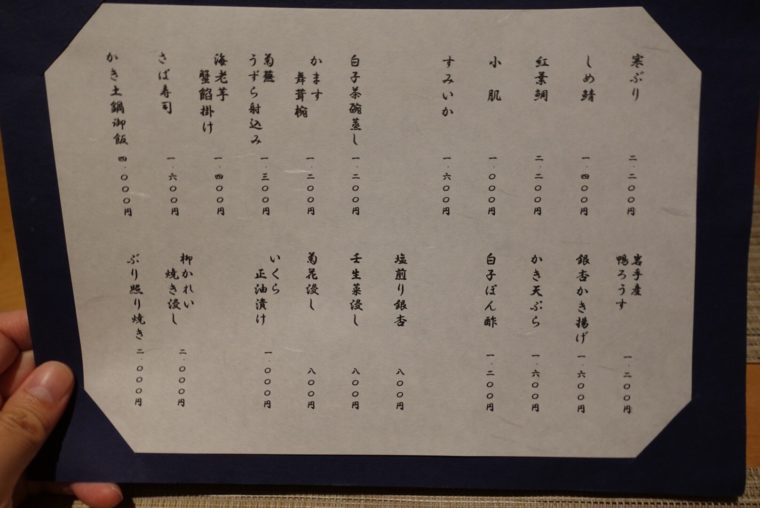 寒ぶり 二、二〇〇円
しめ鯖 一、四〇〇円
紅葉鯛 二、二〇〇円
小肌 一、〇〇〇円
すみいか 一、六〇〇円
白子茶碗蒸し 一、二〇〇円
かます
舞茸椀 一、二〇〇円
菊蕪
うずら射込み 一、三〇〇円
海老芋
蟹餡掛け 一、四〇〇円
さば寿司 一、六〇〇円
かき土鍋御飯 四、〇〇〇円
岩手産
鴨ろうす 一、二〇〇円
銀杏かき揚げ 一、六〇〇円
かき天ぷら 一、六〇〇円
白子ぽん酢 一、二〇〇円
塩煎り銀杏 八〇〇円
壬生菜浸し 八〇〇円
菊花浸し 八〇〇円
いくら
正油漬け 一、〇〇〇円
柳かれい
焼き浸し 二、〇〇〇円
ぶり照り焼き 二、〇〇〇円